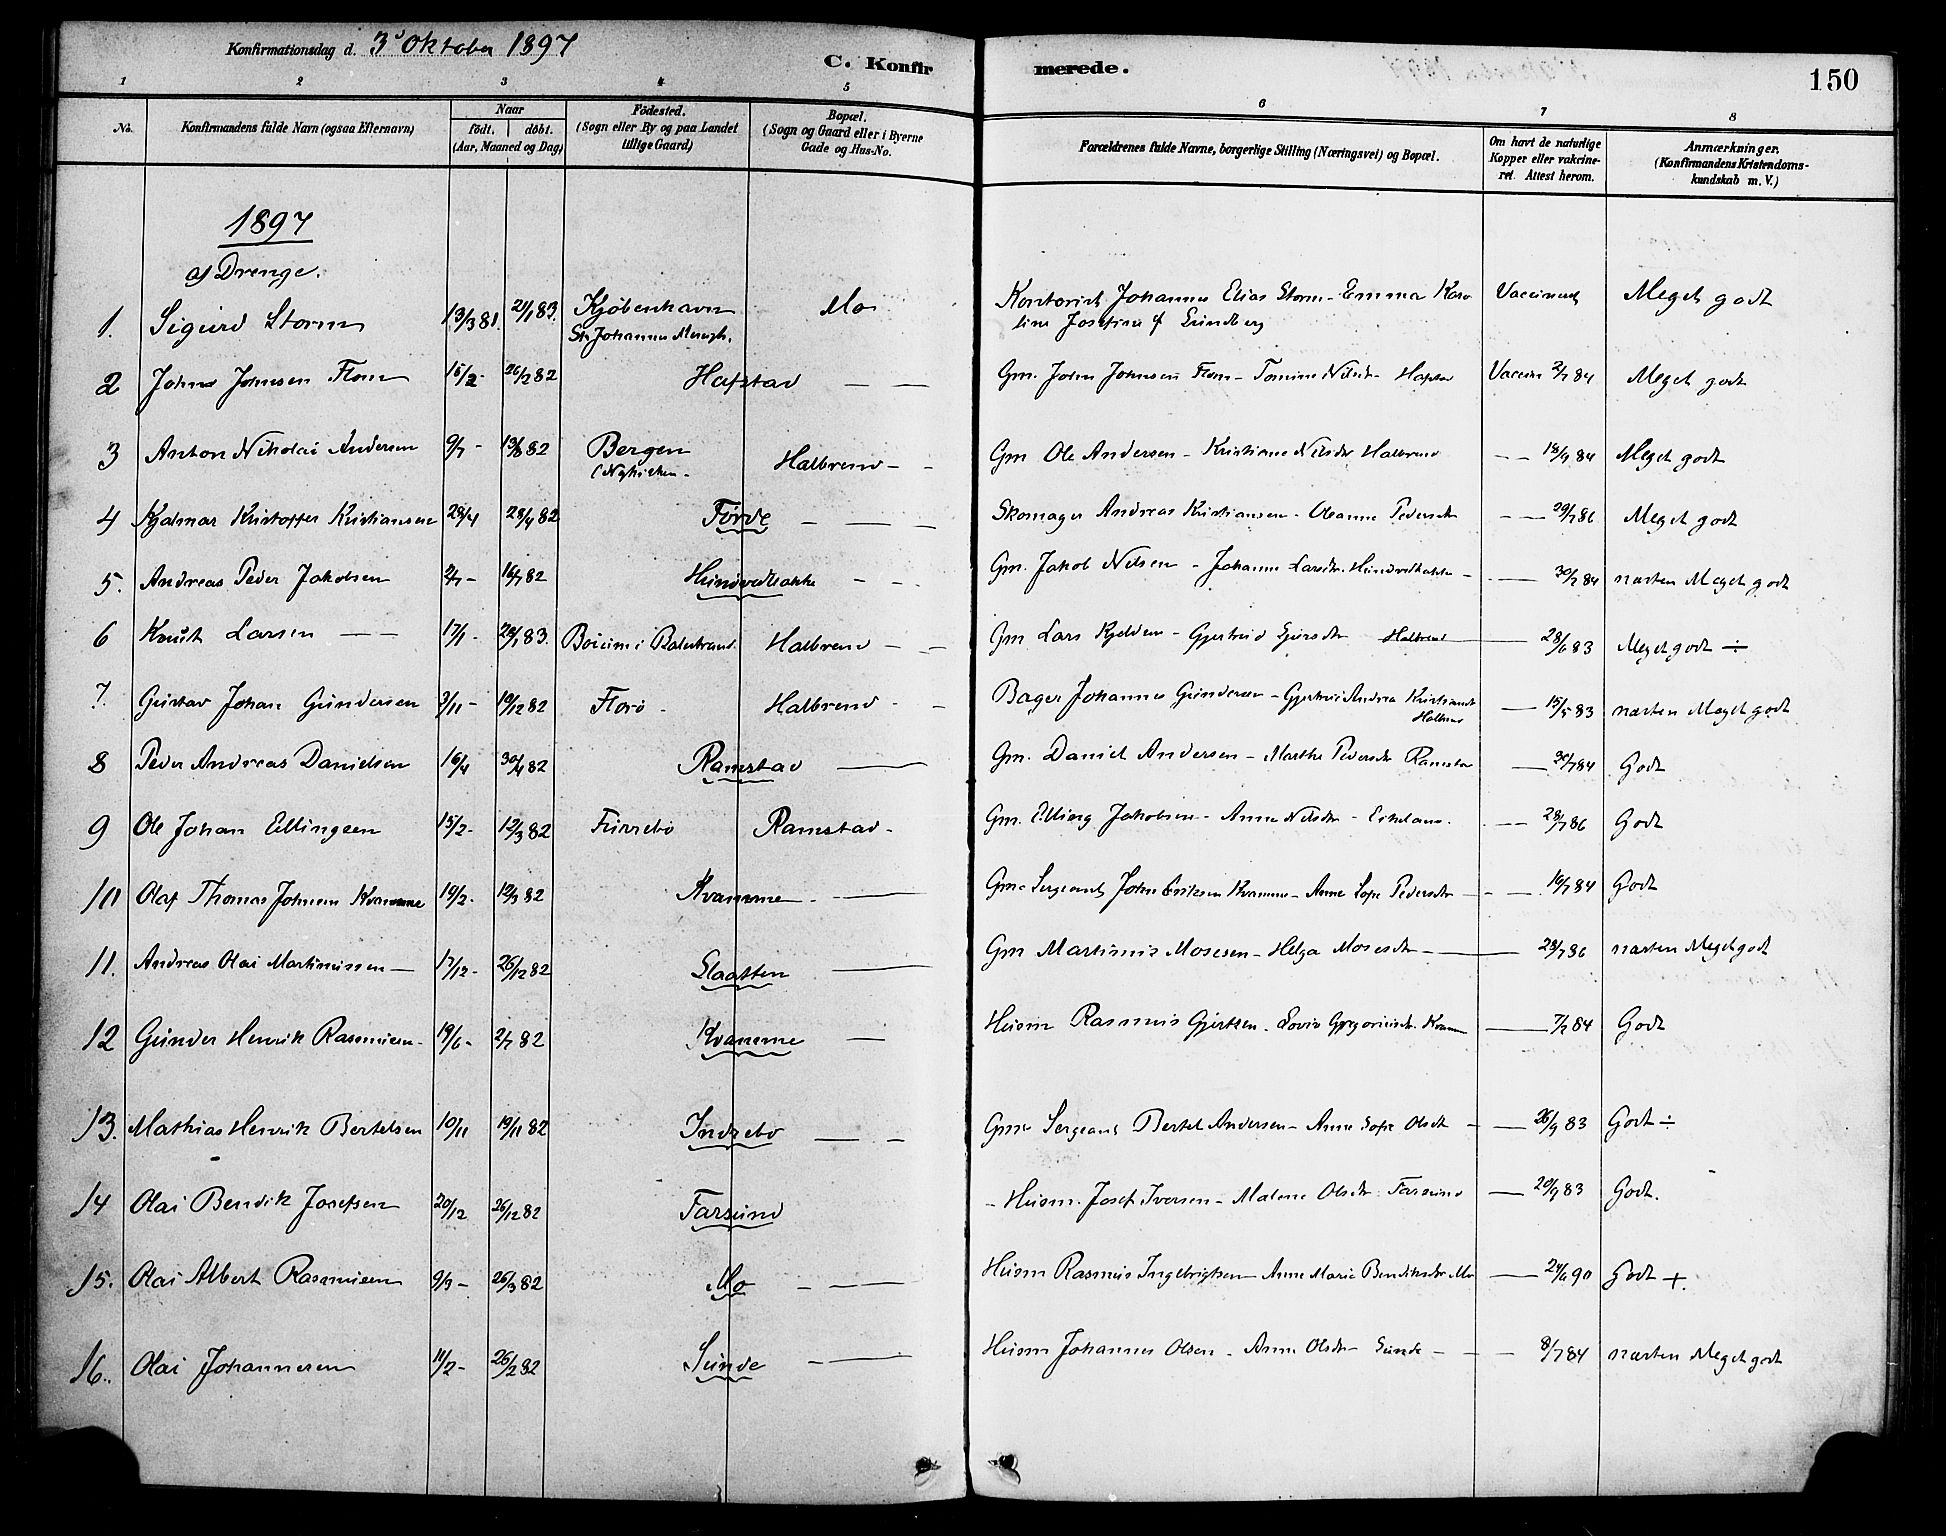 Konfirmationsdag d. 3d Oktober 1897
C. Konfirmerede.
150
1 2 3 4 5 6 7 8
No.
Konfirmandens fulde Navn (ogsaa Efternavn)
Naar
født. døbt.
(Aar, Maaned og Dag)
Fødested.
(Sogn eller By og paa Landet
tillige Gaard)
Bopæl.
(Sogn og Gaard eller i Byerne
Gade og Hus-No.
Forældrenes fulde Navne, borgerlige Stilling (Næringsvei) og Bopæl.
Om havt de naturlige
Kopper eller vakcine-
ret. Attest herom.
Anmærkninger.
(Konfirmandens Kristendoms-
kundskab m. V.)
1897
a) Drenge.
1. Sigurd Storm 13/3 81. 21/1 83. Kjöbenhavn Mo Kontorist Johannes Elias Storm - Emma Karo Vaccinert Meget godt
St. Johannes Menigh. line Josefine f Lundberg
2 Johns Johnsen Flom 15/2 - 26/2 82 Hafstad — — Gm. John Johnsen Flom - Tomine Nilsdr Hafstad Vaccin 2/7 84 Meget godt
3 Anton Nikolai Andersen 9/7 - 13/8 82 Bergen Halbrend - - Gm Ole Andersen - Kristiane Nilsdr Halbrend - - 18/9 84 Meget godt
(Nykirken -
4 Hjalmar Kristoffer Kristiansen 28/4 28/4 82 Førde — — — Skomager Andreas Kristiansen - Oleanne Pedersdtr - — 29/7 86 Meget godt
5. Andreas Peder Jakobsen 2/7 - 16/7 82 Hundvedbakke - - - Gm. Jakob Nilsen - Johanne Larsdtr. Hundvedbakke - - — 30/7 84 næsten Meget godt
6 Knut Larsen — — 17/1 - 28/1 83. Böium i Balestrand. Halbrend - - Gm Lars Kjeldsen - Gjertrud Sjursdtr Halbrend — 28/6 83 Meget godt ÷
7. Gustav Johan Gundersen 3/11 - 10/12 82 Florö - Halbrend - - Bager Johannes Gundersen - Gjertrud Andrea Kristiansdtr — 15/5 83 næsten Meget godt
Halbrend
8 Peder Andreas Danielsen 16/4 30/4 82 Ramstad — Gm. Daniel Andersen - Marthe Pedersdtr Ramstad — 30/7 84 Godt
9 Ole Johan Ellingsen 15/2 - 12/3 82 Furrebö Ramstad - Gm. Elling Jakobsen - Anne Nilsdtr - Eikeland. - — 28/7 86 Godt
10 Olaf Thomas Johnsen Kvamme 19/2 - 12/3 82 Kvamme - — Gm. Sergeant John Eriksen Kvamme - Anne Sofie Pedersdtr - - — 16/7 84 Godt
11. Andreas Olai Martinussen — 17/12 - 26/12 82 Slaatten — Gm Martinus Mosesen - Helga Mosesdtr — — 28/7 86 næsten Meget godt
12 Gunder Henrik Rasmussen - 19/6 - 2/7 82 Kvamme — Husm Rasmus Gjertsen - Lovise Gregoriusdtr. Kvam — 7/7 84 Godt
13. Mathias Henrik Bertelsen 10/11 19/11 82 Indrebö — - Gm. Sergeant Bertel Andersen - Anne Sofie Olsdtr - — 26/9 83 Godt ÷
14 Olai Bendik Josefsen 20/12 26/12 82 Farsund - Husm. Josef Iversen - Malene Olsdtr. Farsund — 20/9 83 Godt.
15. Olai Albert Rasmussen 9/3 - 26/3 82 Mo - — Husm Rasmus Ingebrigtsen - Anne Marie Bendiksdtr Mo — 24/6 90 Godt +.
16. Olai Johannesen 11/2 - 26/2 82 Sunde - — Husm Johannes Olsen - Anne Olsdtr - Sunde - - - 8/7 84 næsten Meget godt